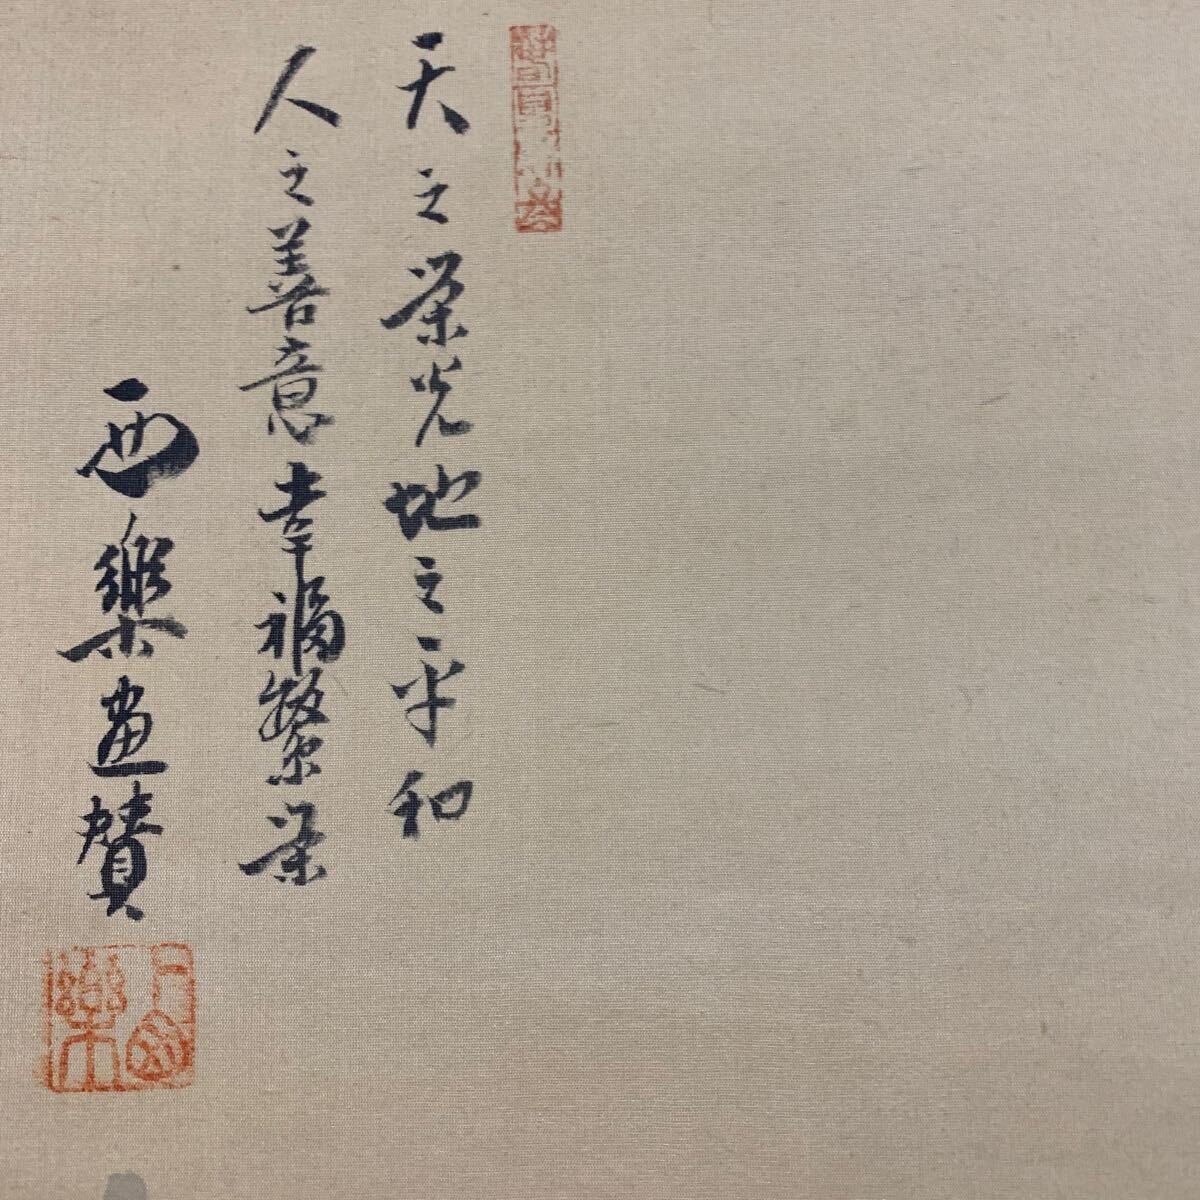 天之栄光地之平和
人之善意幸福繁栄
西樂画賛